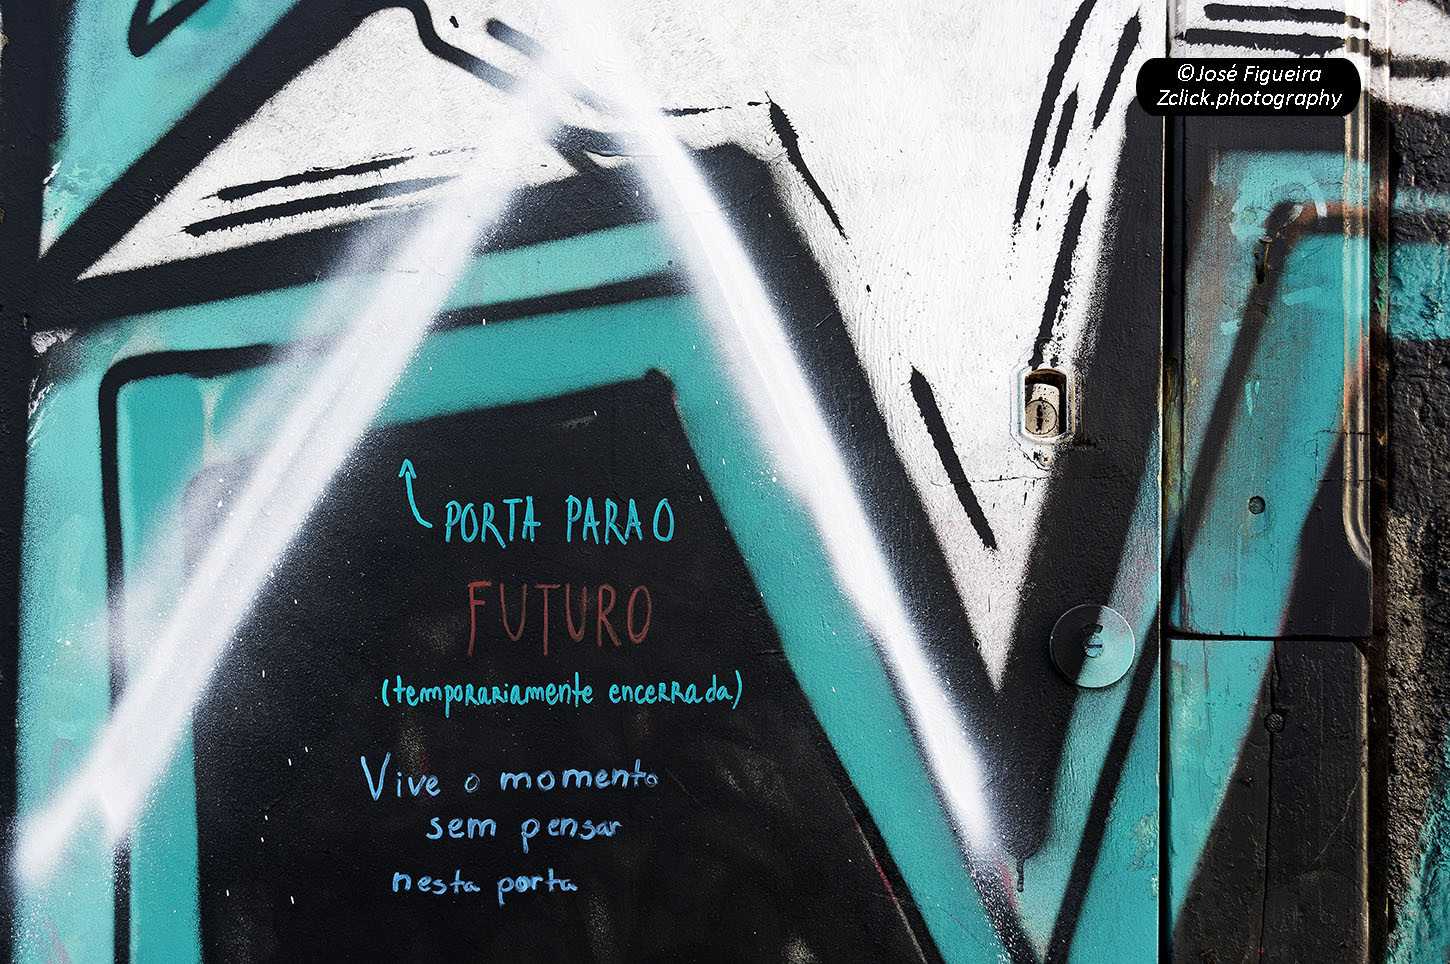 ©José Figueira
Zclick.photography
PORTA PARA O
FUTURO
(temporariamente encerrada)
Vive o momento
sem pensar
nesta porta